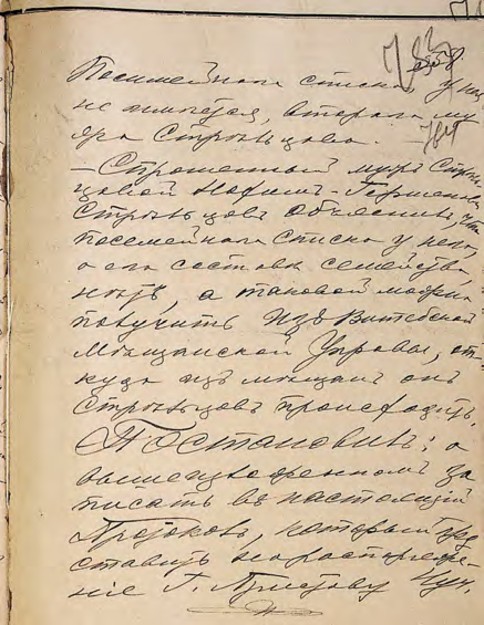 Посимейнаго списка у не
не имѣется, втораго му
жа Стрѣльцова.
— Спрошенный мужъ Стрѣль
цовой Нафимъ-Гершен
Стрѣльцовъ Объяснилъ, что
посемейнаго списка у него,
о его составѣ семейства,
нѣтъ, а таковой можно
получить изъ Витебской
Мѣщанской Управы, от
куда изъ мѣщанъ онъ
Стрѣльцовъ происходитъ.
Постановилъ: о
вышеизложенномъ за
писать въ настоящій
Протоколъ, который пред
ставить на распоряже
ніе Г. Приставу